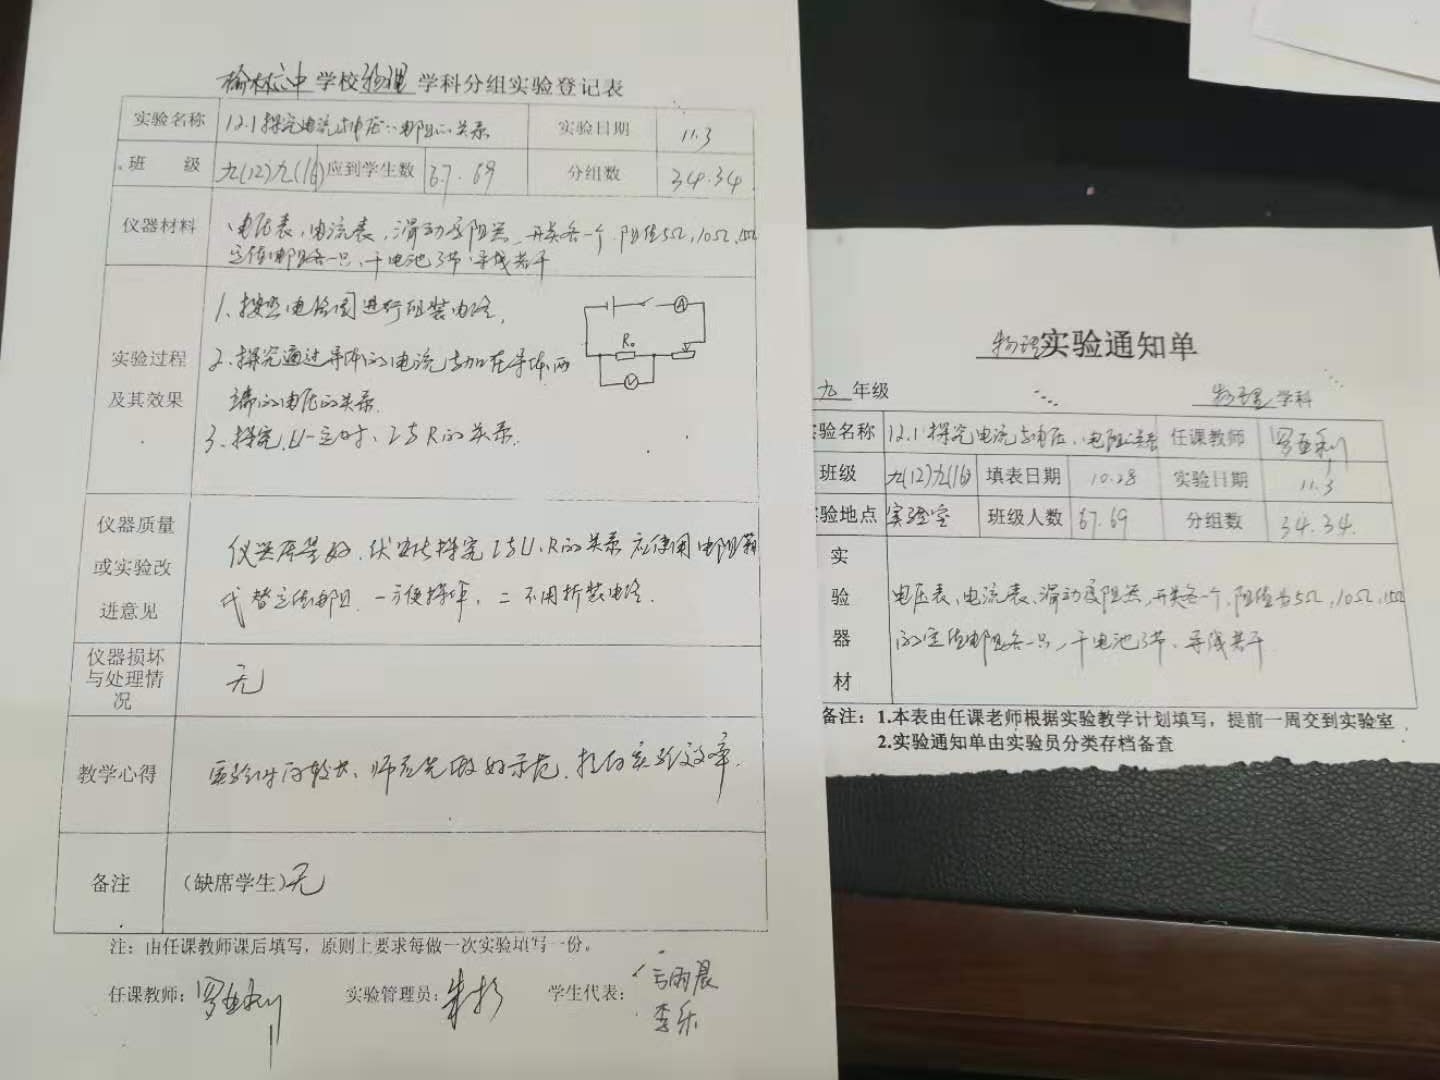 榆林六中学校物理学科分组实验登记表
实验名称 12.1探究电流与电压、电阻的关系 实验日期 11.3
班 级 九(12)九(16) 应到学生数 67.69 分组数 34.34
仪器材料 电压表、电流表、滑动变阻器、开关各一个、阻值5Ω,10Ω,15Ω
定值电阻各一只、干电池3节、导线若干
实验过程
及其效果
1、按照电路图进行组装电路。
2、探究通过导体的电流与加在导体两
端的电压的关系.
3、探究U一定时、I与R的关系.
A
R₀
V
仪器质量
或实验改
进意见
仪器质量好、探究I与U、R的关系 应使用电阻箱
代替定值电阻、一方便操作、二不用拆装电路.
仪器损坏
与处理情
况
无
教学心得 实验时间较长、师应先做好示范、提高实验效率.
备注 (缺席学生)无
注：由任课教师课后填写，原则上要求每做一次实验填写一份。
任课教师：罗亚利 实验管理员：朱 学生代表：雨晨
李乐
物理实验通知单
九年级 物理学科
实验名称 12.1探究电流与电压、电阻关系 任课教师 罗亚利
班级 九(12)九(16) 填表日期 10.28 实验日期 11.3
实验地点 实验室 班级人数 67.69 分组数 34.34.
实
验
器
材
电压表、电流表、滑动变阻器、开关各一个、阻值为5Ω,10Ω,15Ω
的定值电阻各一只、干电池3节、导线若干
备注：1.本表由任课老师根据实验教学计划填写，提前一周交到实验室
2.实验通知单由实验员分类存档备查